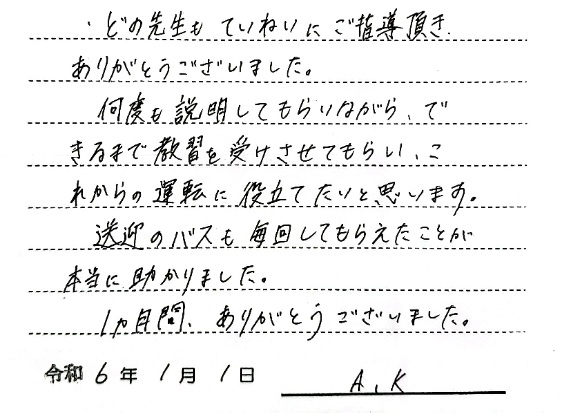 ・どの先生も ていねいに ご指導頂き
ありがとうございました。
何度も説明してもらいながら、で
きるまで教習を受けさせてもらい、こ
れからの運転に役立てたいと思います。
送迎のバスも毎回してもらえたことが
本当に助かりました。
1ヵ月間、ありがとうございました。
令和 6 年 1 月 1 日 A.K